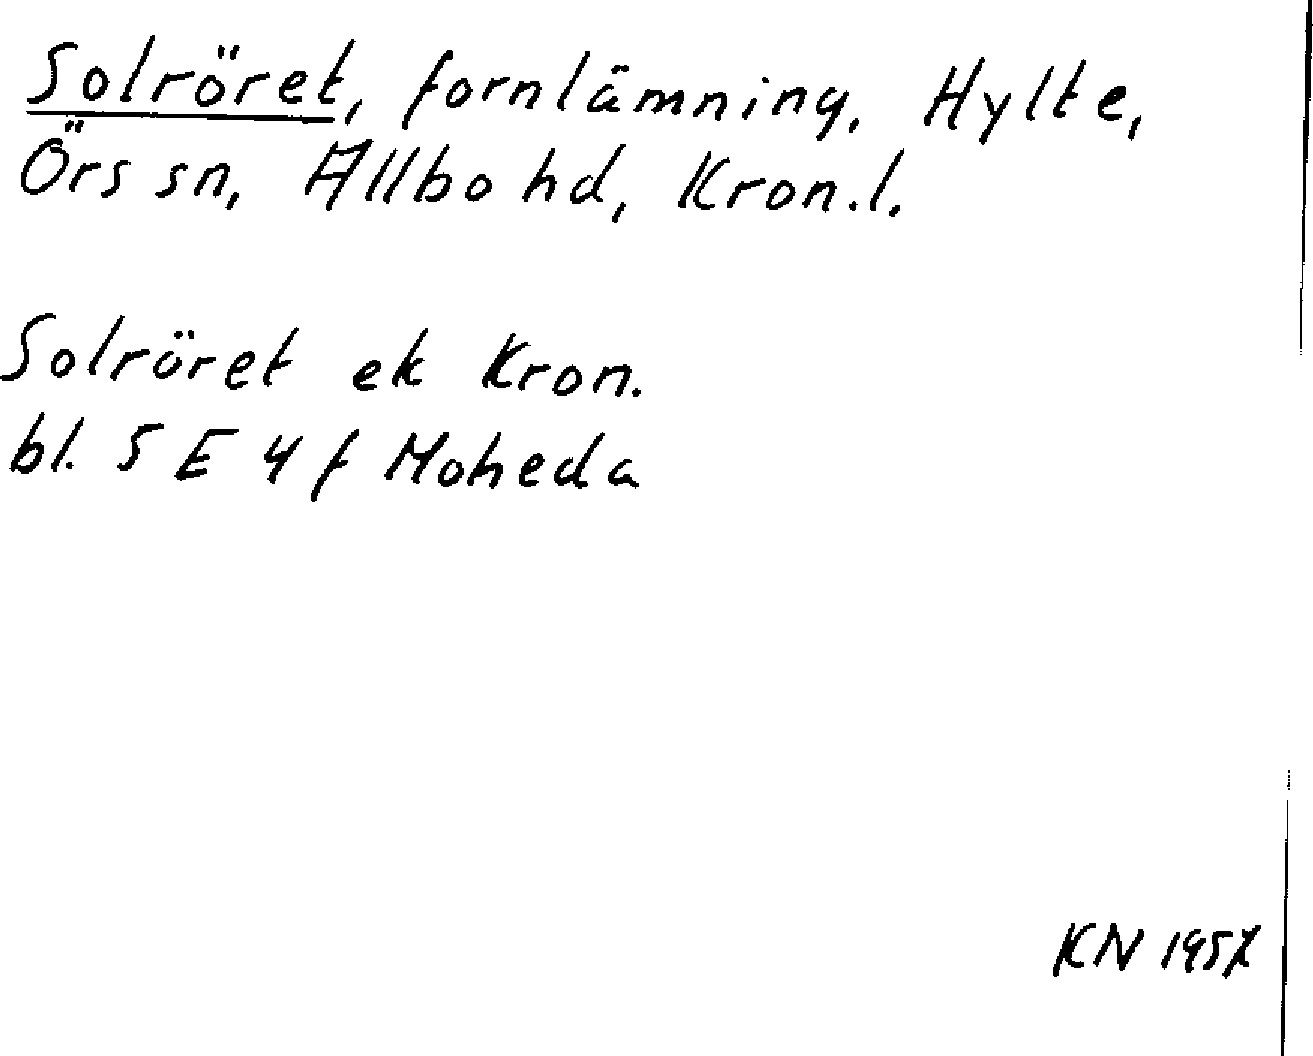 Solröret, fornlämning, Hylte,
Örs sn, Allbo hd, Kron.l.
Solröret ek Kron.
bl. 5 E 4 f Moheda
KN 1957